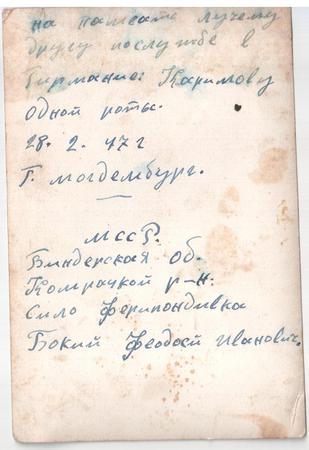 на памеать лучему
другу послужбе в
Гирмание: Каримову
одной роты.
28. 2. 47 г
Г. Могдембург.
МССР.
Биндерская об.
Комрачкой р-н.
Сило Ферипондивка
Бокий Феодосй Иванович.